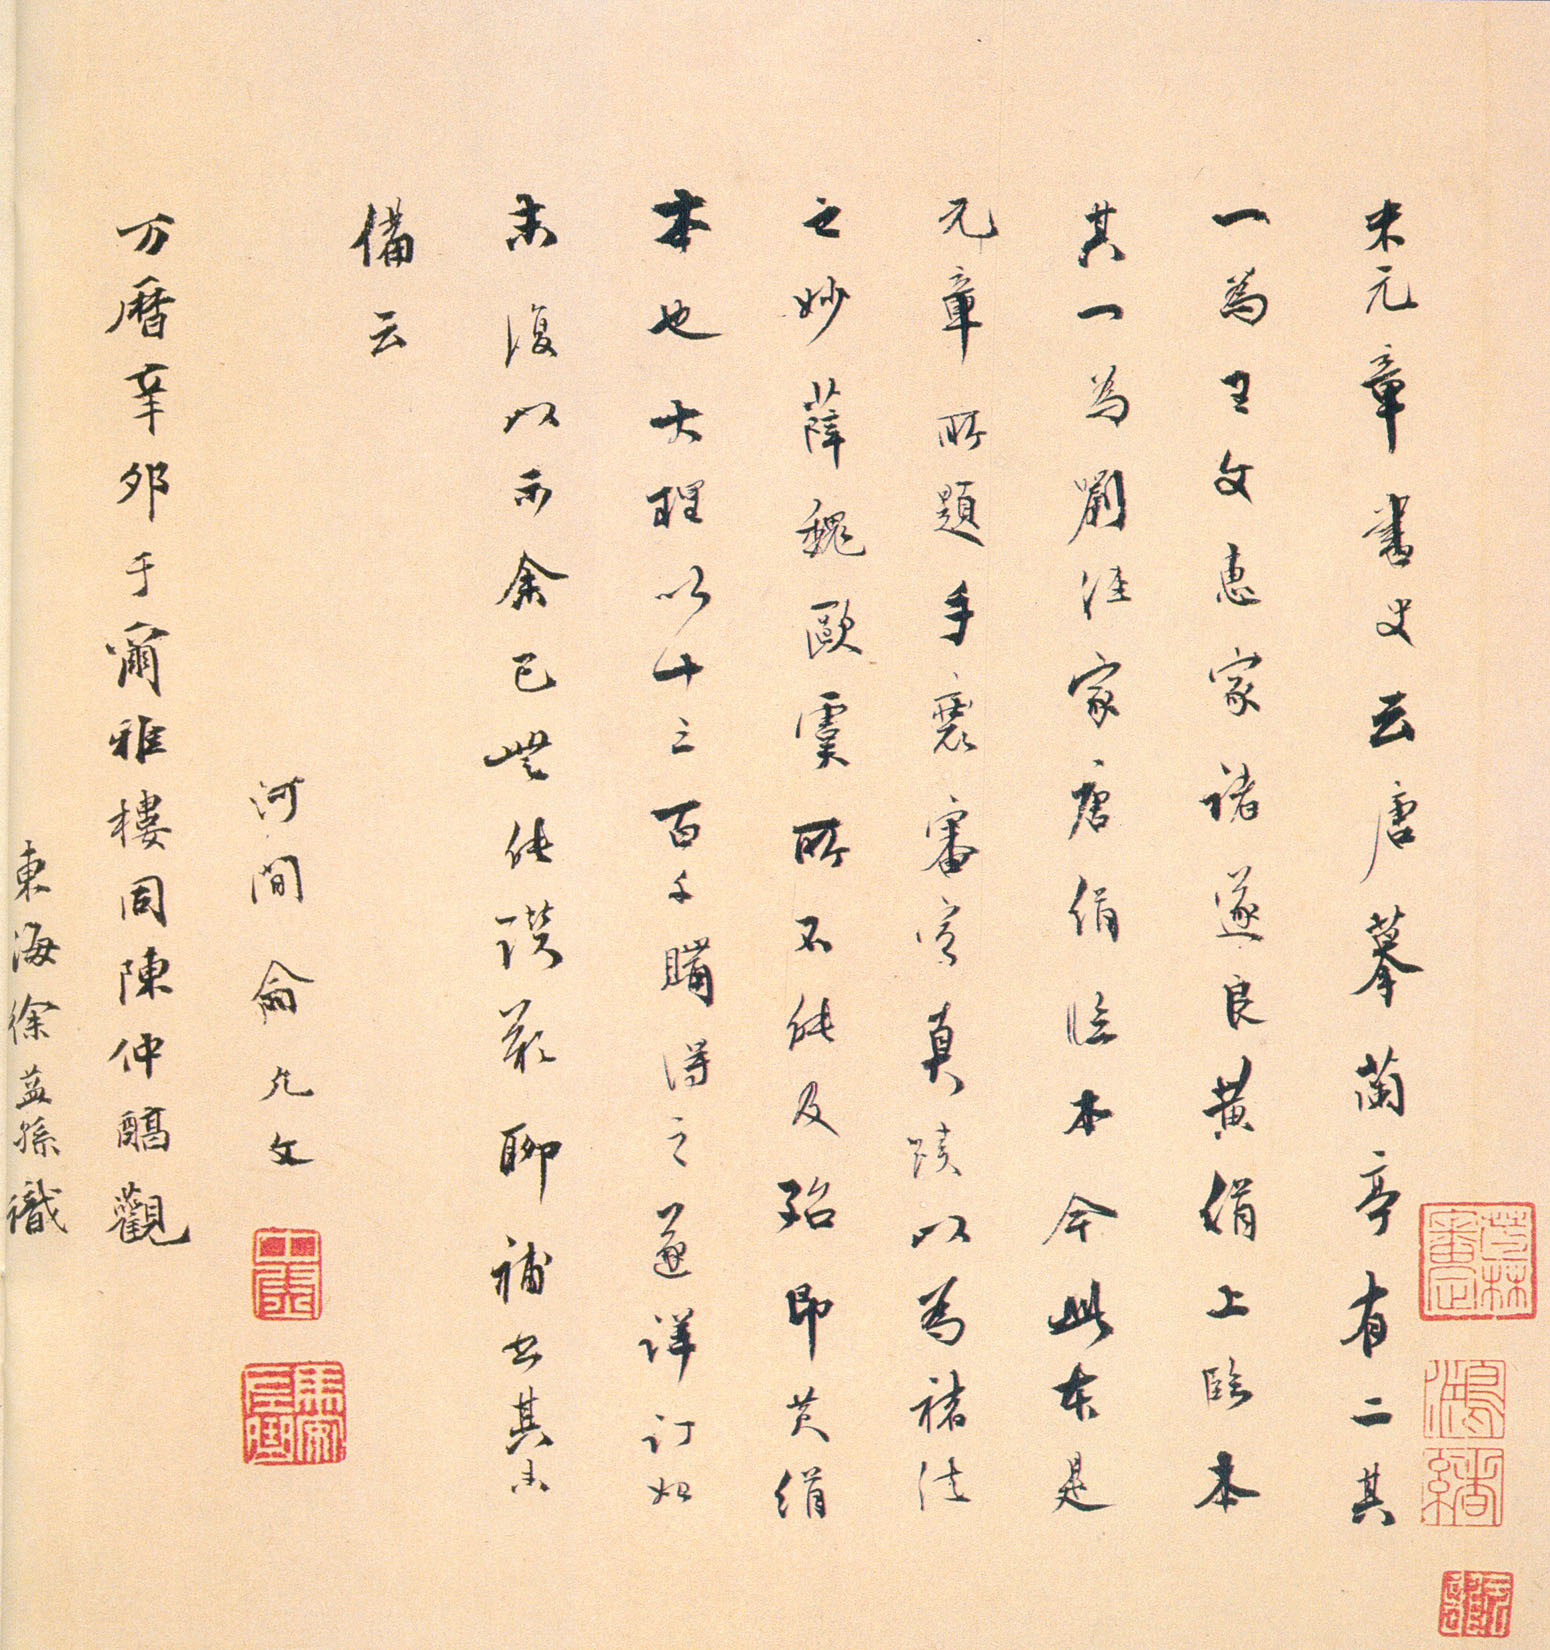 米元章書史云唐摹蘭亭有二其
一為王文惠家諸遂良黃絹上臨本
其一為劉涇家唐絹臨本今此本是
元章所題手裹審定真蹟以為褚法
之妙薛魏歐虞所不能及殆即黃絹
本也大理以十三百千購得之遂詳訂如
末復以示余已無能讚敘聊補書其未
備云
河間俞允文
万曆辛卯于爾雅樓同陳仲醕觀
東海徐益孫識
芳林審定